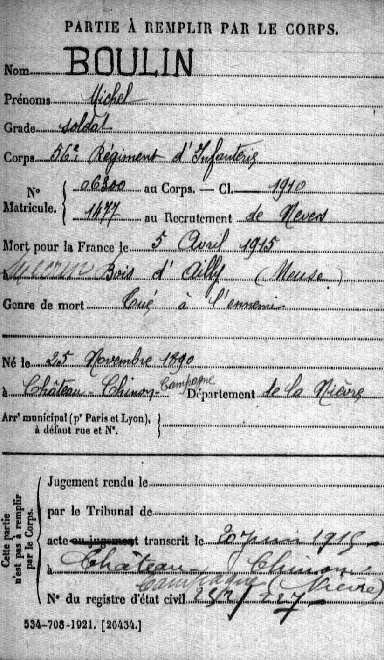 PARTIE À REMPLIR PAR LE CORPS.
Nom BOULIN
Prénoms Michel
Grade soldat
Corps 56e Régiment d'Infanterie
N° Matricule. { 06300 au Corps. — Cl. 1910
1477 au Recrutement de Nevers
Mort pour la France le 5 Avril 1915
à Bois d'Ailly (Meuse)
Genre de mort Tué à l'ennemi
Né le 25 Novembre 1890
à Château-Chinon-Campagne Département de la Nièvre
Arrt municipal (pr Paris et Lyon), à défaut rue et N°. }
Cette partie n'est pas à remplir par le Corps.
Jugement rendu le
par le Tribunal de
acte ou jugement transcrit le 20 juin 1915
à Château Chinon
Campagne (Nièvre)
N° du registre d'état civil
534-708-1921. [26434.]